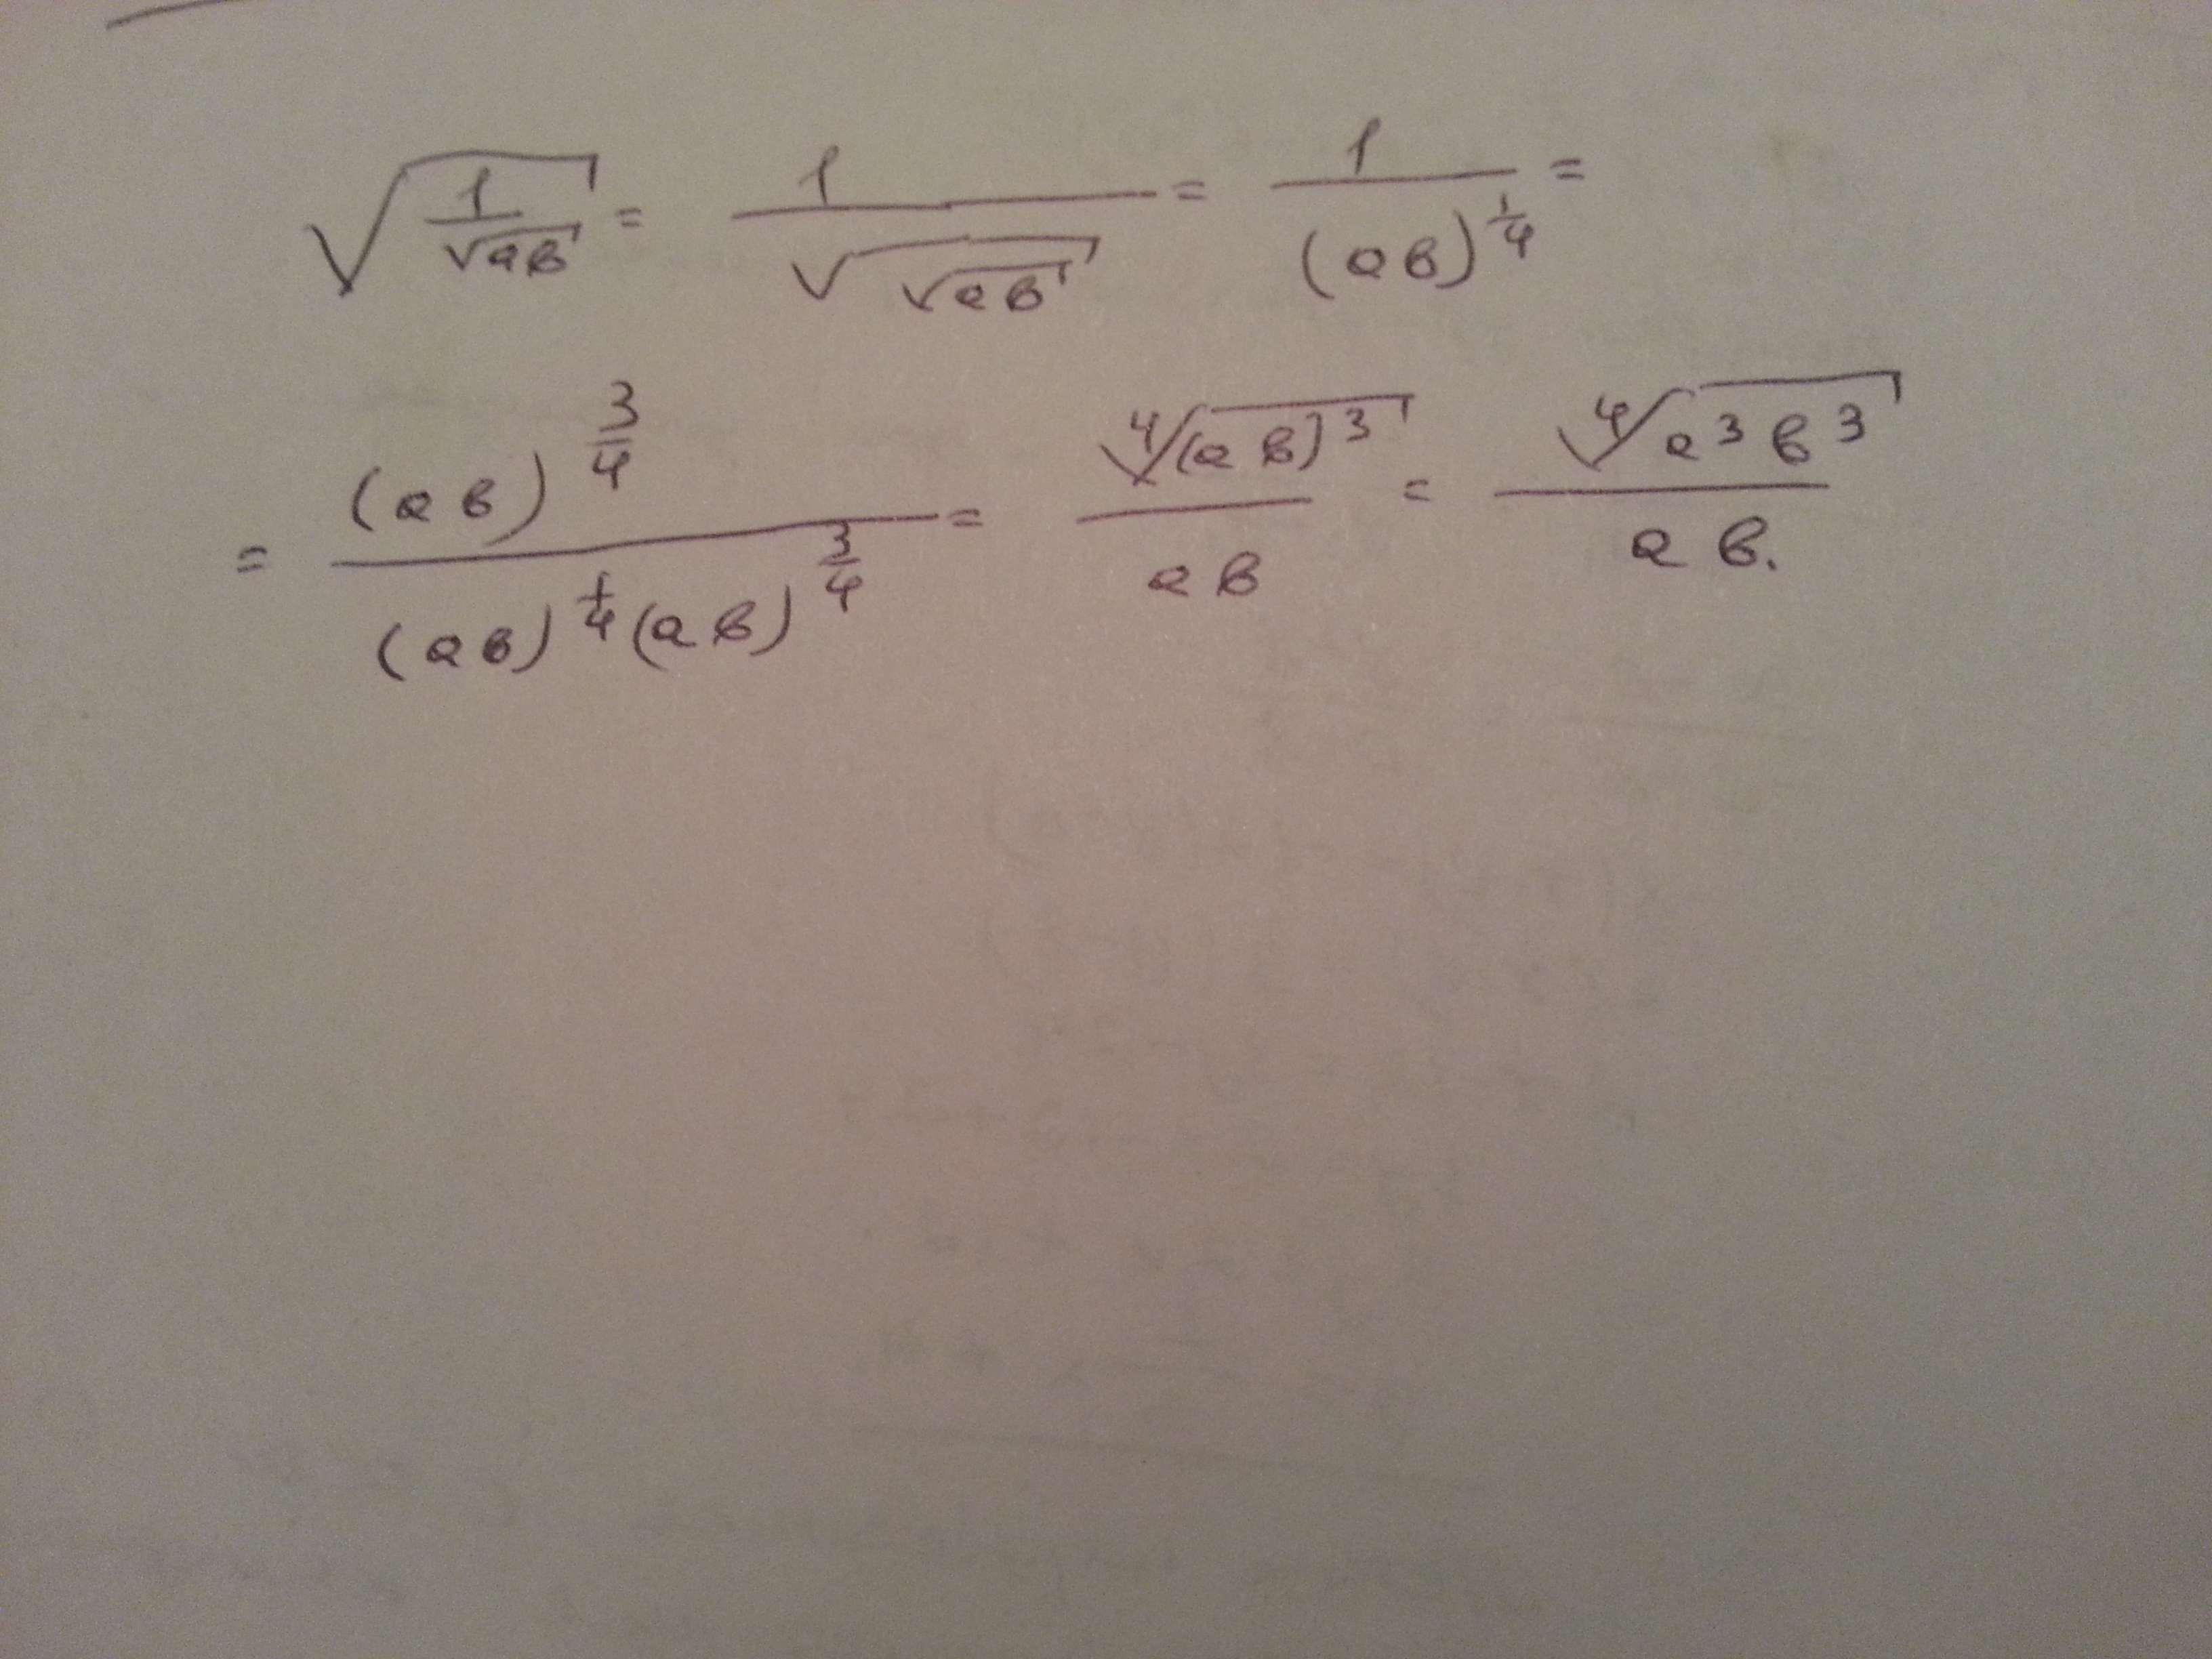 √(1/√(ab)) = 1/√(√(ab)) = 1/(ab)^(1/4) =
= (ab)^(3/4)/((ab)^(1/4)(ab)^(3/4)) = ∜((ab)^3)/(ab) = ∜(a^3b^3)/(ab).